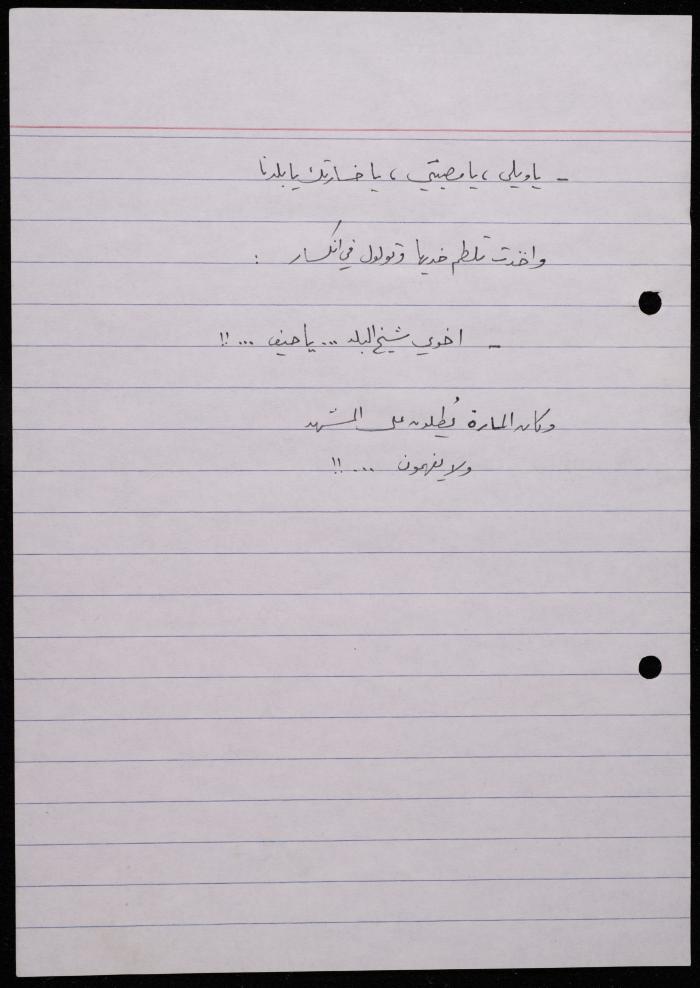 - يا ويلي ، يا مصيبتي ، يا خسارتك يا بلدنا
واخذت تلطم خديها وتولول في انكسار :
- اخوي شيخ البلد ... يا حيف ... !!
وكان المارة يُطلون على المشهد
ولا يفهمون ... !!